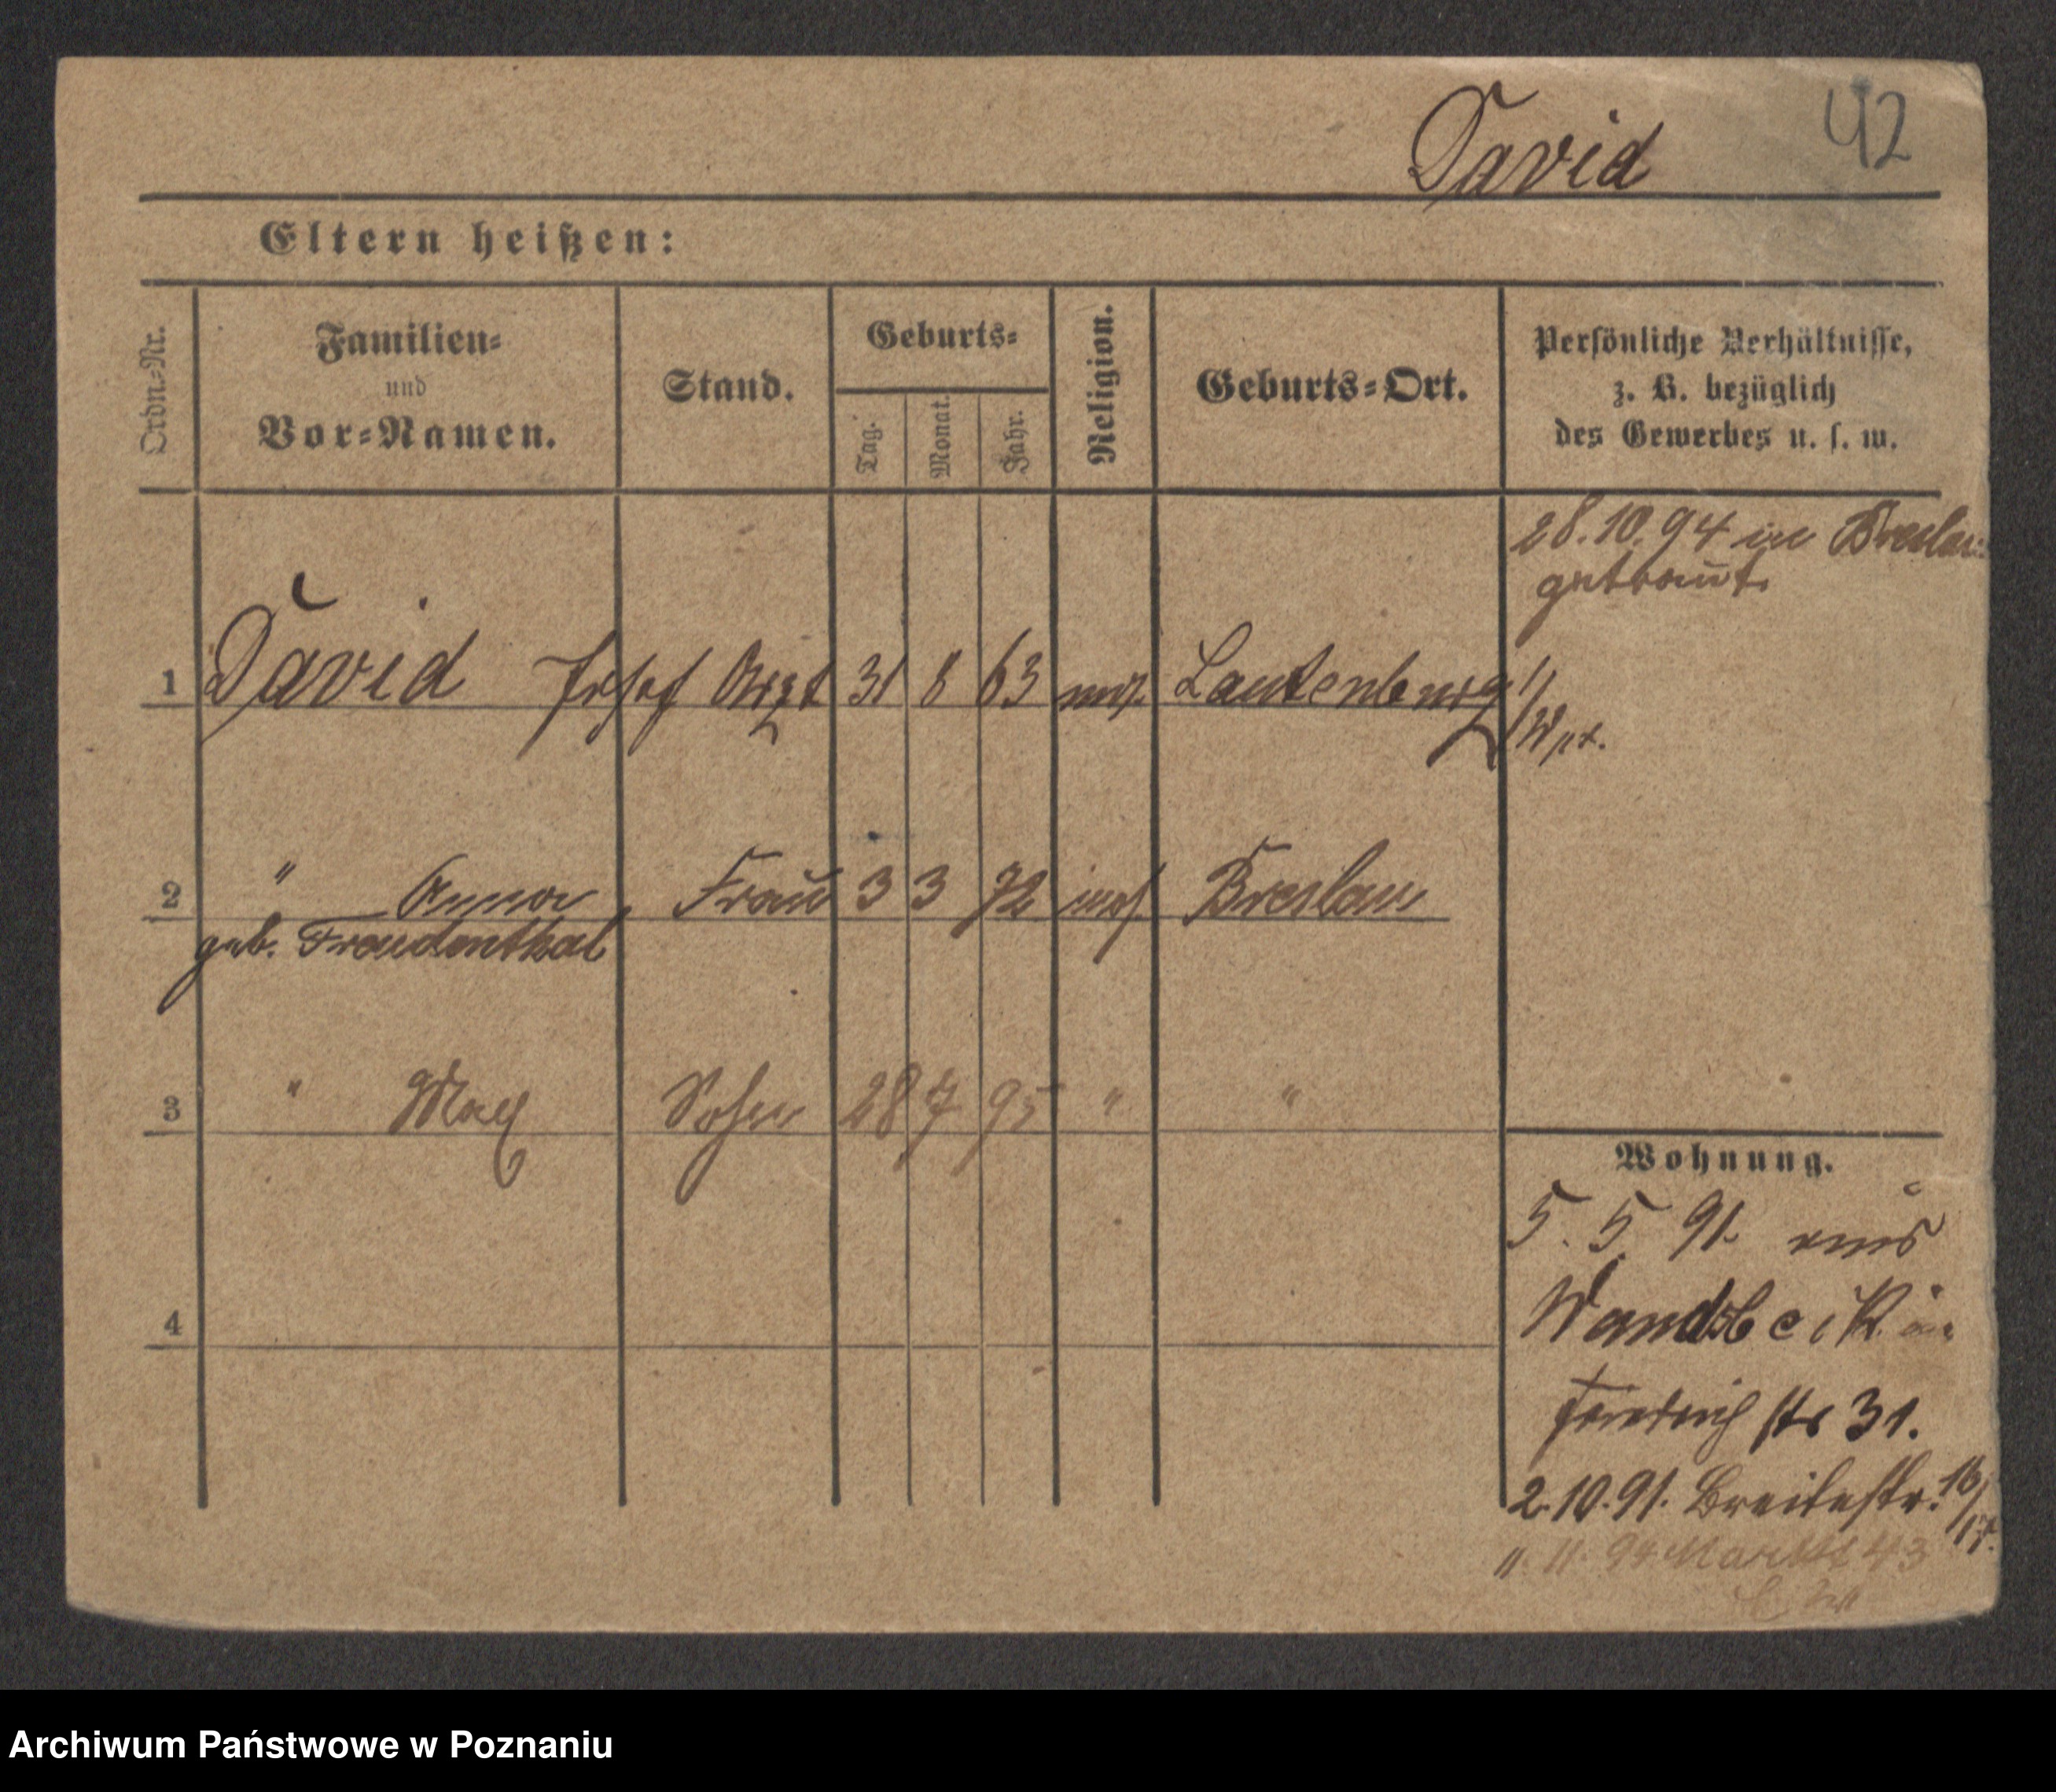 David 42
Eltern heißen:
Ordn.-Nr.
Familien-
und
Vor-Namen.
Stand.
Geburts-
Tag.
Monat.
Jahr.
Religion.
Geburts-Ort.
Persönliche Verhältnisse,
z. B. bezüglich
des Gewerbes u. s. w.
28.10.94 in Breslau
getraut.
1 David Josef Arzt 31 8 63 mos. Lautenburg
Wpr.
2 " Anna Frau 3 3 72 mos. Breslau
geb. Freudenthal
3 " Max Sohn 28 7 95 " "
4
Wohnung.
5. 5. 91. aus
Wandsbeik
Friedrich str 31.
2.10.91. Breitestr. 16/17.
11. 94 Markt 43
Archiwum Państwowe w Poznaniu